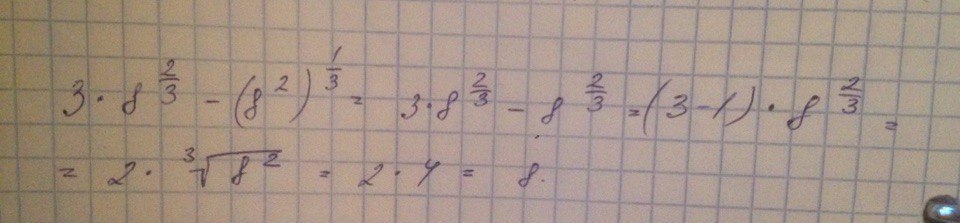 3 · 8^(2/3) - (8^2)^(1/3) = 3·8^(2/3) - 8^(2/3) = (3-1) · 8^(2/3) =
= 2 · ∛(8^2) = 2·4 = 8.